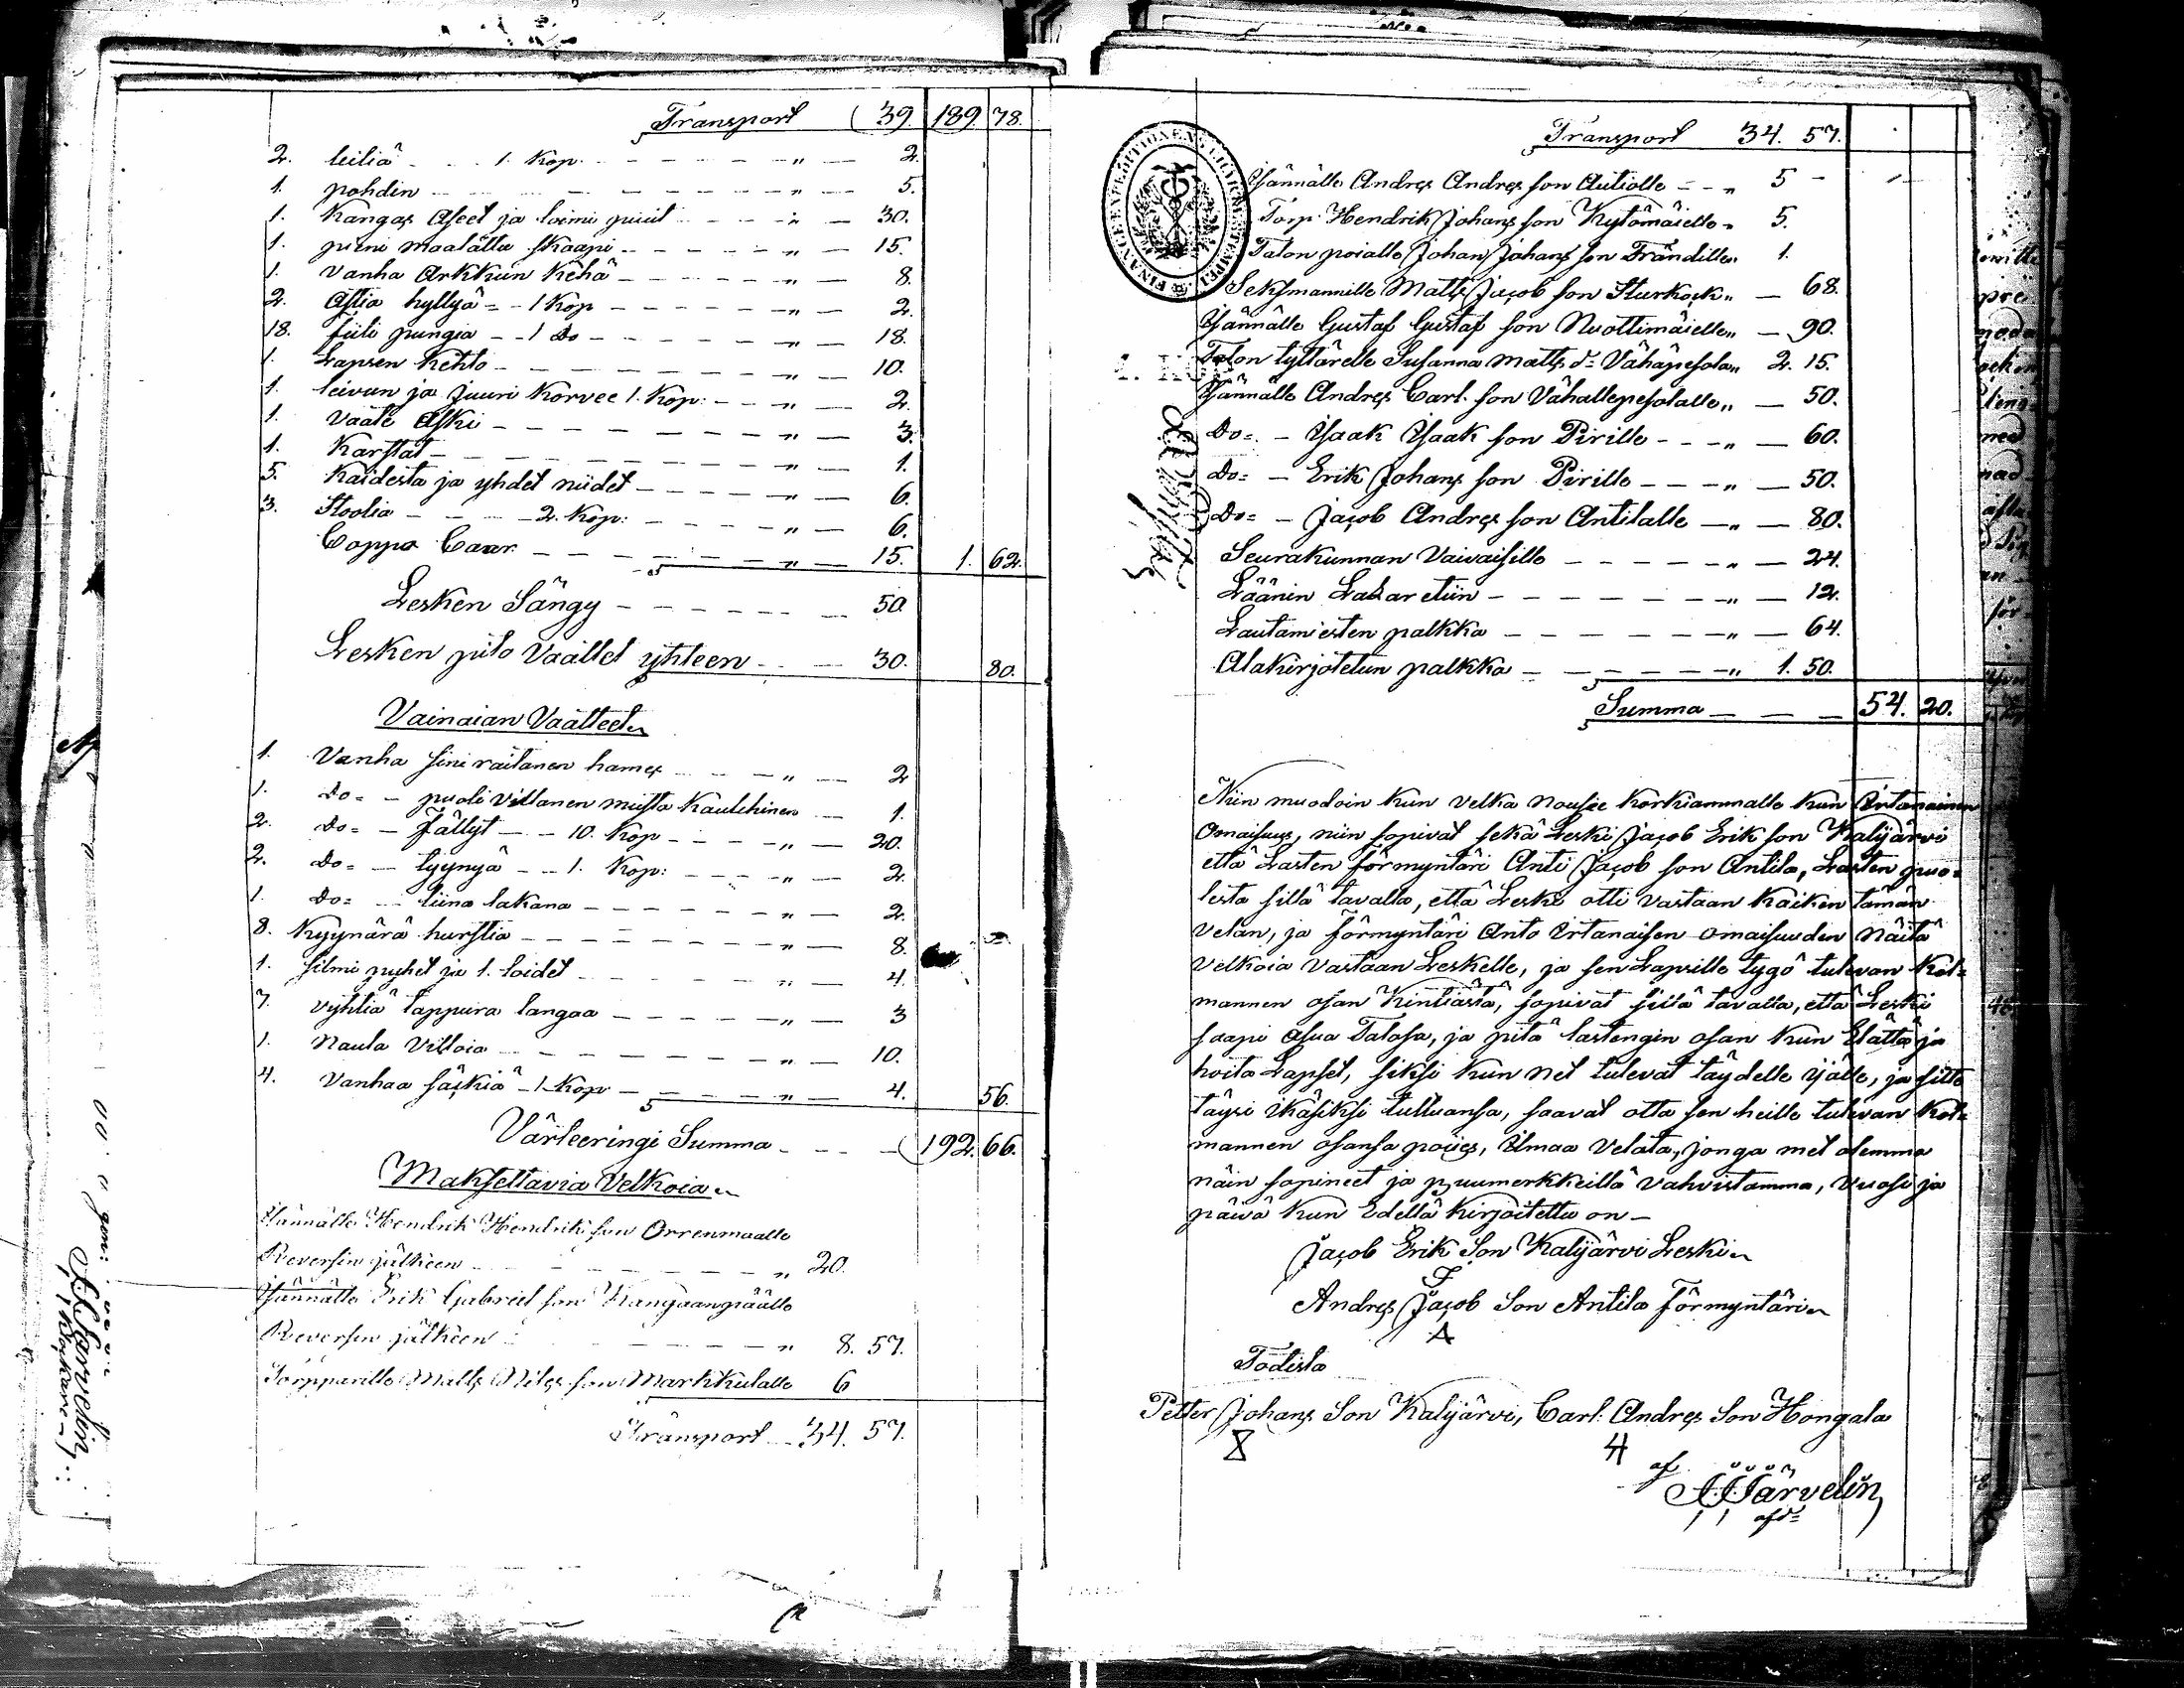 Transport 39. 189. 78.
2. leiliä - - 1. Kop. - - - " - 2.
1. pohdin - - - " - 5.
1. Kangas Aseet ja loimi puut - - " - 30.
1. pieni maalattu skaapi - - - " - 15.
1. Vanha Arkkun Kehä - - - " - 8.
2. Astia hyllyä - - 1 Kop - - - " - 2.
18. fiili pungia - - 1 do - - - " - 18.
1. Lapsen Kehto - - - " - 10.
1. leivun ja Juuri Korvee 1. Kop: - - " - 2.
1. Vaate Aski - - - " - 3.
1. Karstat - - - " - 1.
5. Kaidesta ja yhdet niidet - - - " - 6.
3. Stoolia - - - 2. Kop: - - - " - 6.
Coppo Caar - - - " - 15. 1. 62.
Lesken Sängy - - - 50.
Lesken pito Vaattet yhteen - - 30. 80.
Vainaian Vaatteet
1. Vanha sini raitanen hames - - " - 2
1. do = - puoli villanen musta Kauhthinen - 1.
2. do = - fällyt - - 10. Kop - - - " - 20.
2. do = - tyynyä - - 1. Kop: - - - " - 2.
1. do = - liina lakana - - - " - 2.
8. Kyynärä hurstia - - - " - 8.
1. silmi pyhet ja 1. loidet - - - " - 4.
7. vyhtiä tappura langaa - - - " - 3
1. Naula Villoia - - - " - 10.
4. Vanhaa säkiä - 1 Kop - - - " - 4. 56.
Värteeringi Summa - - - 192. 66.
Maksettavia Velkoia
Isännälle Hendrik Hendrik son Orrenmaalle
Reversin jälkeen - - - " 20.
Isännälle Erik Gabriel son Kangaanpäälle
Reversin jälkeen - - - " 8. 57.
Torpparille Matts Nils son Markkulalle 6
Transport - 34. 57.
Transport 34. 57.
Isännälle Andrs Andrs son Autiolle - - " 5 -
Torp. Hendrik Johans son Kytömäielle " 5.
Talon poialle Johan Johans son Frändille " 1.
Seksmannille Matts Jacob son Sturkock " - 68.
Isännälle Gustaf Gustaf son Nuottimäielle " - 90.
Talon tyttärelle Susanna Matts dr Vähäpesola " 2. 15.
Isännälle Andrs Carl son Vähallepesolalle " - 50.
do = - Isaak Isaak son Pirille - - " - 60.
do = - Erik Johans son Pirille - - " - 50.
do = - Jacob Andrs son Antilalle - " - 80.
Seurakunnan Vaivaisille - - - " - 24.
Läänin Lazaretiin - - - " - 12.
Lautamiesten palkka - - - " - 64.
Alakirjotetun palkka - - - " 1. 50.
Summa - - - 54. 20.
Niin muodoin kun velka nousee korkiammalle kun Irtanainen
Omaisuus, niin sopivat sekä Leski Jacob Erik son Kalijärvi
että Lasten förmyntäri Anti Jacob son Antila, Lasten puo=
lesta sillä tavalla, että Leski otti vastaan Kaiken tämän
velan, ja förmyntäri Anto Irtanaisen omaisuuden näitä
velkoia vastaan Leskelle, ja sen Lapsille tygö tulevan Kol=
mannen osan Kintiästä, sopivat sillä tavalla, että Leski
saapi Asua Talosa, ja pitä lastengin osan kun Elättä ja
hoita Lapset, siksi kun net tulevat täydelle ijälle, ja sitte
täysi ikäsiksi tultuansa, saavat otta sen heille tulevan Kol=
mannen osansa poijes, Ilmaa Velata, jonga met olemma
näin sopineet ja puumerkkeillä vahvistamma, vuosi ja
päivä kun Edellä kirjoitettu on -
Jacob Erik Son Kalijärvi Leski
Andrs Jacob Son Antila förmyntäri
Todista
Petter Johans Son Kalijärvi, Carl Andrs Son Hongala
af
Järvelin